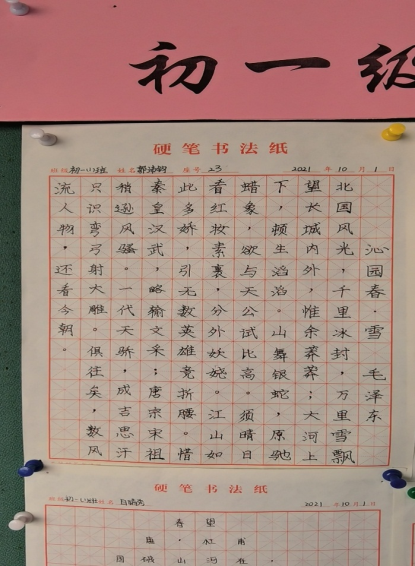 初一级
硬笔书法纸
班级 初一 班 姓名 座号 23 2021 年 10 月 1 日
沁园春·雪 毛泽东
北国风光，千里冰封，万里雪飘
望，长城内外，惟余莽莽；大河上
下，顿生滔滔。山舞银蛇，原驰
蜡象，欲与天公试比高。须晴日
看红妆，素裹，分外妖娆。江山如
此多娇，引无数英雄；竞折腰。惜
秦皇汉武，略输文采；唐宗宋祖
稍逊风骚。一代天骄，成吉思汗
只识弯弓射大雕。俱往矣，数风
流人物，还看今朝。
硬笔书法纸
班级 初一 班 姓名 2021 年 10 月 1 日
春望
唐·杜甫
国破山河在，